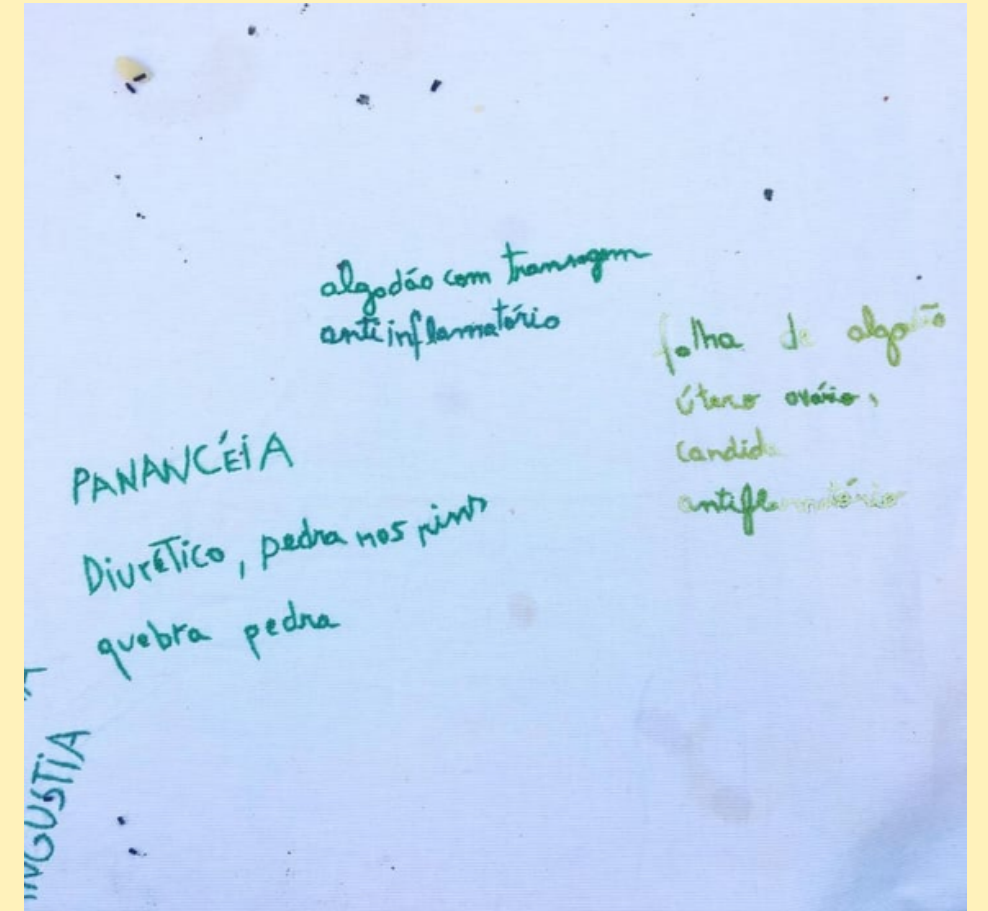 algodão com transagem
antiinflamatório
folha de algodão
útero ovário,
candida
antiflamatório
PANANCÉIA
Diurético, pedra nos rins
quebra pedra
ANGUSTIA